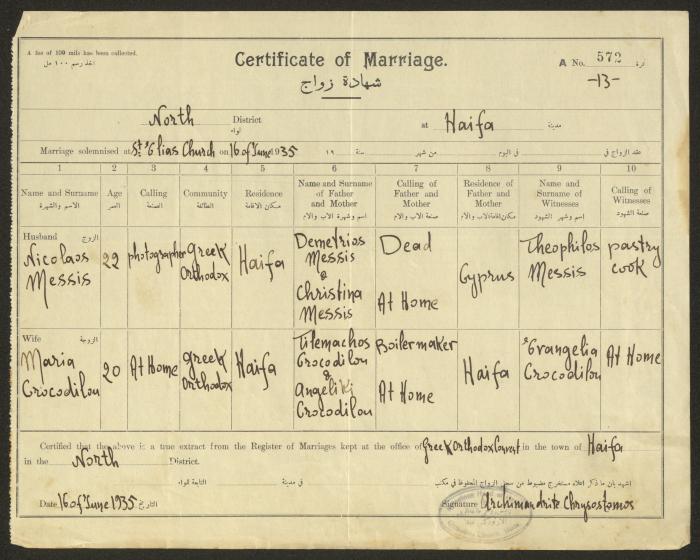 A fee of 100 mils has been collected.
اخذ رسم ١٠٠ مل
Certificate of Marriage.
شهادة زواج
A No. 572 نمرة
-13-
North District
لواء
at Haifa مدينة
Marriage solemnised at St Elias Church on 16 of June 1935 ١٩ سنة من شهر في اليوم عقد الزواج في
1 2 3 4 5 6 7 8 9 10
Name and Surname Age Calling Community Residence Name and Surname of Father and Mother Calling of Father and Mother Residence of Father and Mother Name and Surname of Witnesses Calling of Witnesses
الاسم والشهرة العمر الصنعة الطائفة مكان الاقامة اسم وشهرة الاب والام صنعة الاب والام مكان اقامة الاب والام اسم وشهرة الشهود صنعة الشهود
Husband الزوج
Nicolaos Messis 22 photographer Greek Orthodox Haifa Demetrios Messis & Christina Messis Dead At Home Cyprus Theophilos Messis pastry cook
Wife الزوجة
Maria Crocodilou 20 At Home Greek Orthodox Haifa Tilemachos Crocodilou & Angeliki Crocodilou Boilermaker At Home Haifa Evangelia Crocodilou At Home
Certified that the above is a true extract from the Register of Marriages kept at the office of Greek Orthodox Convent in the town of Haifa
in the North District.
اشهد بان ما ذكر اعلاه مستخرج مضبوط من سجل الزواج المحفوظ في مكتب في مدينة التابعة للواء
Date 16 of June 1935 التاريخ
Signature Archimandrite Chrysostomos